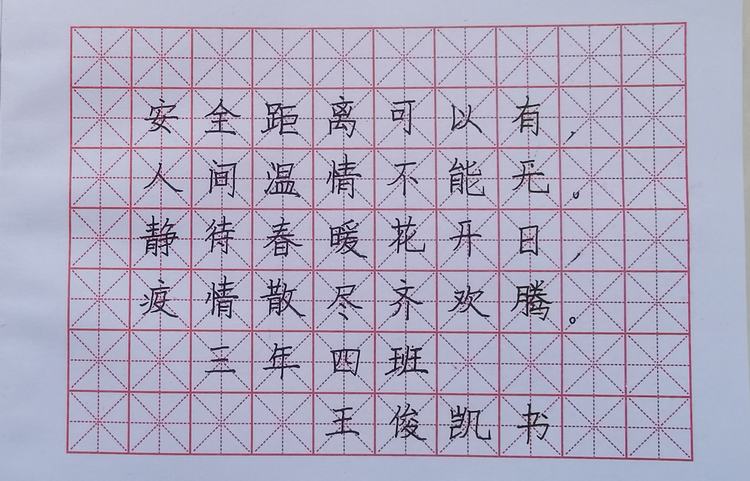 安全距离可以有,
人间温情不能无。
静待春暖花开日,
疫情散尽齐欢腾。
三年四班
王俊凯书